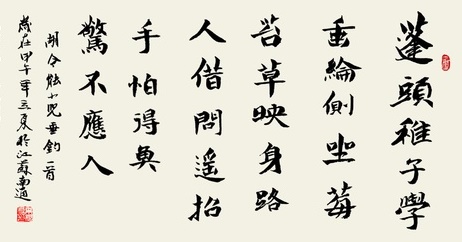 蓬頭稚子學
垂綸側坐莓
苔草映身路
人借問遙招
手怕得魚
驚不應人
胡令能小兒垂釣一首
歲在甲午年立夏於江蘇南通